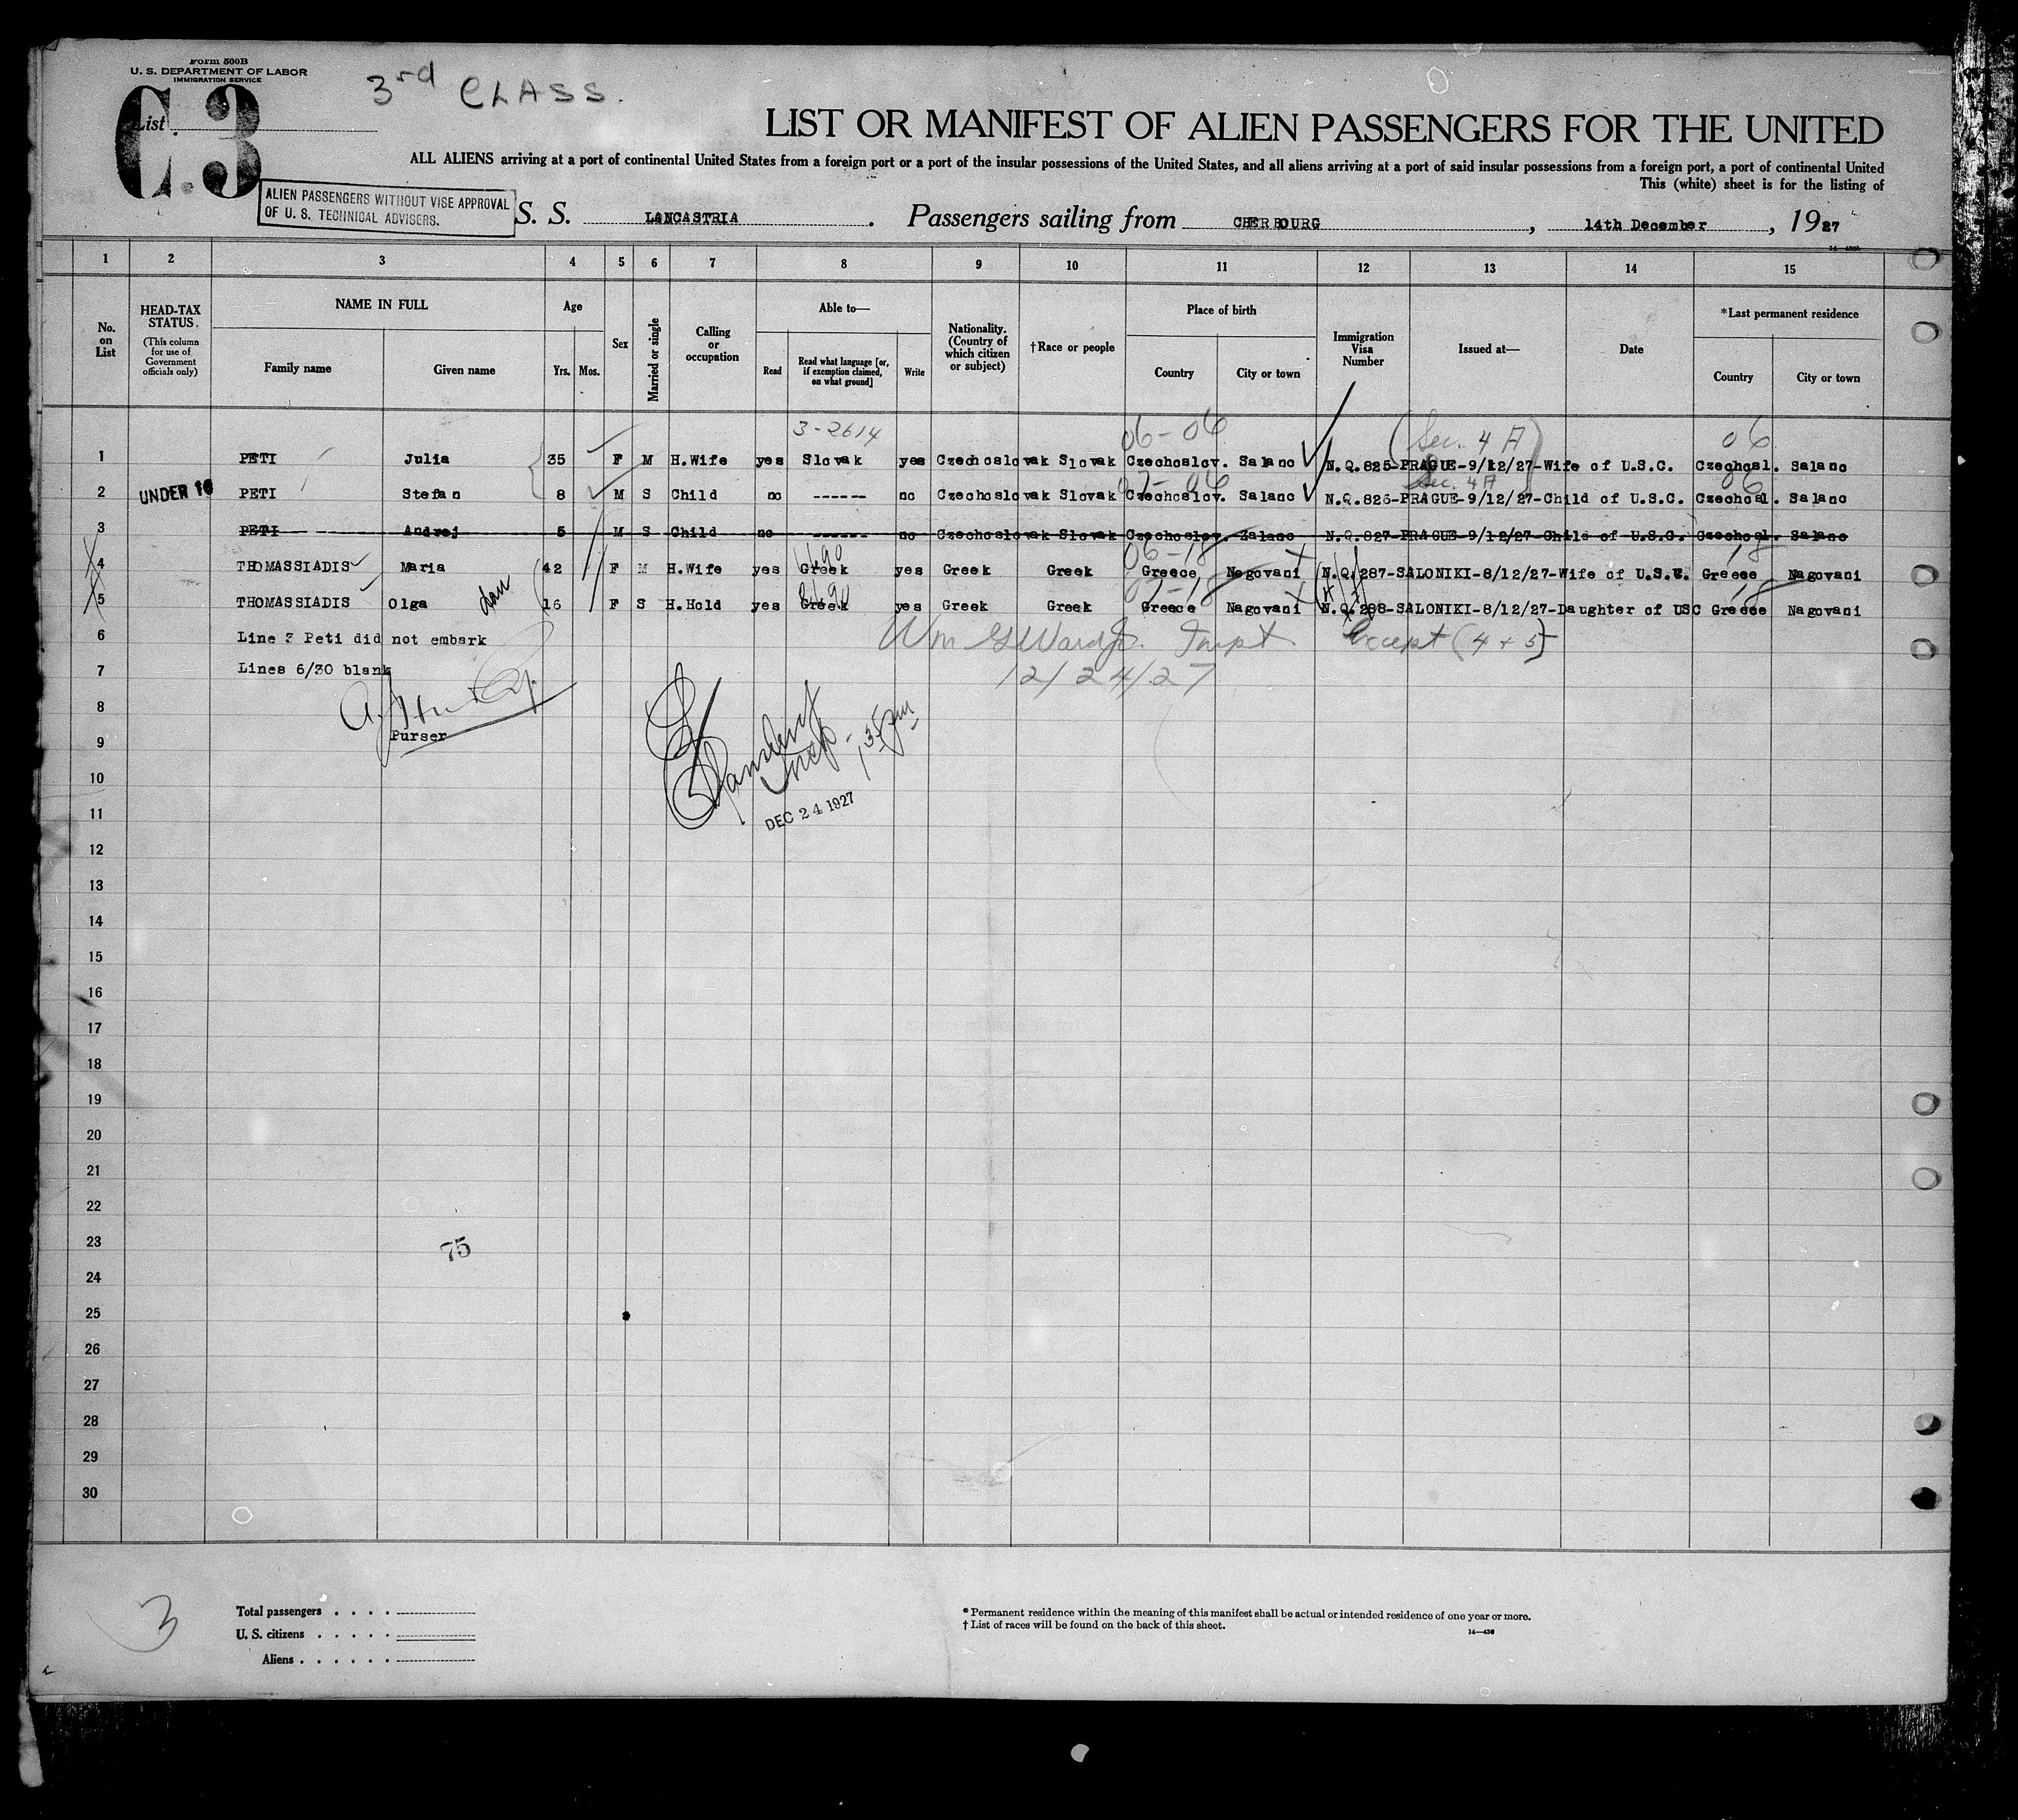 Form 500B
U. S. DEPARTMENT OF LABOR
IMMIGRATION SERVICE
3rd CLASS.
C.3
List
LIST OR MANIFEST OF ALIEN PASSENGERS FOR THE UNITED
ALL ALIENS arriving at a port of continental United States from a foreign port or a port of the insular possessions of the United States, and all aliens arriving at a port of said insular possessions from a foreign port, a port of continental United
This (white) sheet is for the listing of
ALIEN PASSENGERS WITHOUT VISE APPROVAL
OF U. S. TECHNICAL ADVISERS.
S. S. LANCASTRIA. Passengers sailing from CHERBOURG, 14th December, 1927
1 2 3 4 5 6 7 8 9 10 11 12 13 14 15
No. on List
HEAD-TAX STATUS. (This column for use of Government officials only)
NAME IN FULL
Family name Given name
Age
Yrs. Mos.
Sex
Married or single
Calling or occupation
Able to—
Read Read what language [or, if exemption claimed, on what ground] Write
Nationality. (Country of which citizen or subject)
†Race or people
Place of birth
Country City or town
Immigration Visa Number
Issued at—
Date
*Last permanent residence
Country City or town
3-2614 06-06 (Sec. 4 A) 06
1 PETI Julia 35 F M H.Wife yes Slovak yes Czechoslovak Slovak Czechoslov. Salanc N.Q.825-PRAGUE-9/12/27-Wife of U.S.C. Czechosl. Salanc
07-06 Sec. 4A 06
2 UNDER 16 PETI Stefan 8 M S Child no ------ no Czechoslovak Slovak Czechoslov. Salanc N.Q.826-PRAGUE-9/12/27-Child of U.S.C. Czechosl. Salanc
3 PETI Andrej 5 M S Child no ------ no Czechoslovak Slovak Czechoslov. Zalanc N.Q.827-PRAGUE-9/12/27-Child of U.S.C. Czechosl. Salanc
06-18 18
4 THOMASSIADIS Maria 42 F M H.Wife yes Greek yes Greek Greek Greece Negovani N.Q.287-SALONIKI-8/12/27-Wife of U.S.C. Greece Nagovani
07-18 18
5 THOMASSIADIS Olga 16 F S H.Hold yes Greek yes Greek Greek Greece Nagovani N.Q.288-SALONIKI-8/12/27-Daughter of USC Greece Nagovani
6 Line 3 Peti did not embark Wm G Ward Jr. Inspt Except (4 + 5)
7 Lines 6/30 blank 12/24/27
8
Purser
9
Insp. 1 35 pm
10
11
DEC 24 1927
12
13
14
15
16
17
18
19
20
21
22
23
75
24
25
26
27
28
29
30
3
Total passengers
U. S. citizens
Aliens
* Permanent residence within the meaning of this manifest shall be actual or intended residence of one year or more.
† List of races will be found on the back of this sheet.